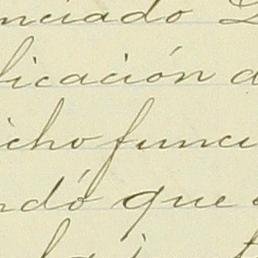 nciado
licación d
icho funci
ndó que